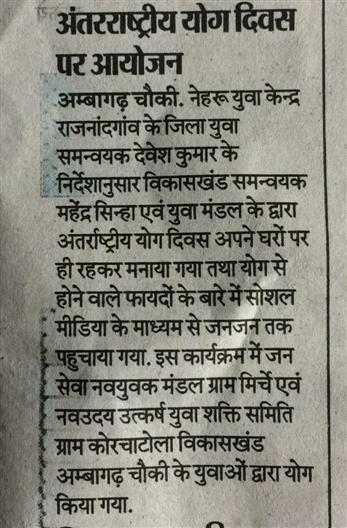 अंतरराष्ट्रीय योग दिवस
पर आयोजन
अम्बागढ़ चौकी. नेहरू युवा केन्द्र
राजनांदगांव के जिला युवा
समन्वयक देवेश कुमार के
निर्देशानुसार विकासखंड समन्वयक
महेंद्र सिन्हा एवं युवा मंडल के द्वारा
अंतर्राष्ट्रीय योग दिवस अपने घरों पर
ही रहकर मनाया गया तथा योग से
होने वाले फायदों के बारे में सोशल
मीडिया के माध्यम से जनजन तक
पहुचाया गया. इस कार्यक्रम में जन
सेवा नवयुवक मंडल ग्राम मिर्चे एवं
नवउदय उत्कर्ष युवा शक्ति समिति
ग्राम कोरचाटोला विकासखंड
अम्बागढ़ चौकी के युवाओं द्वारा योग
किया गया.